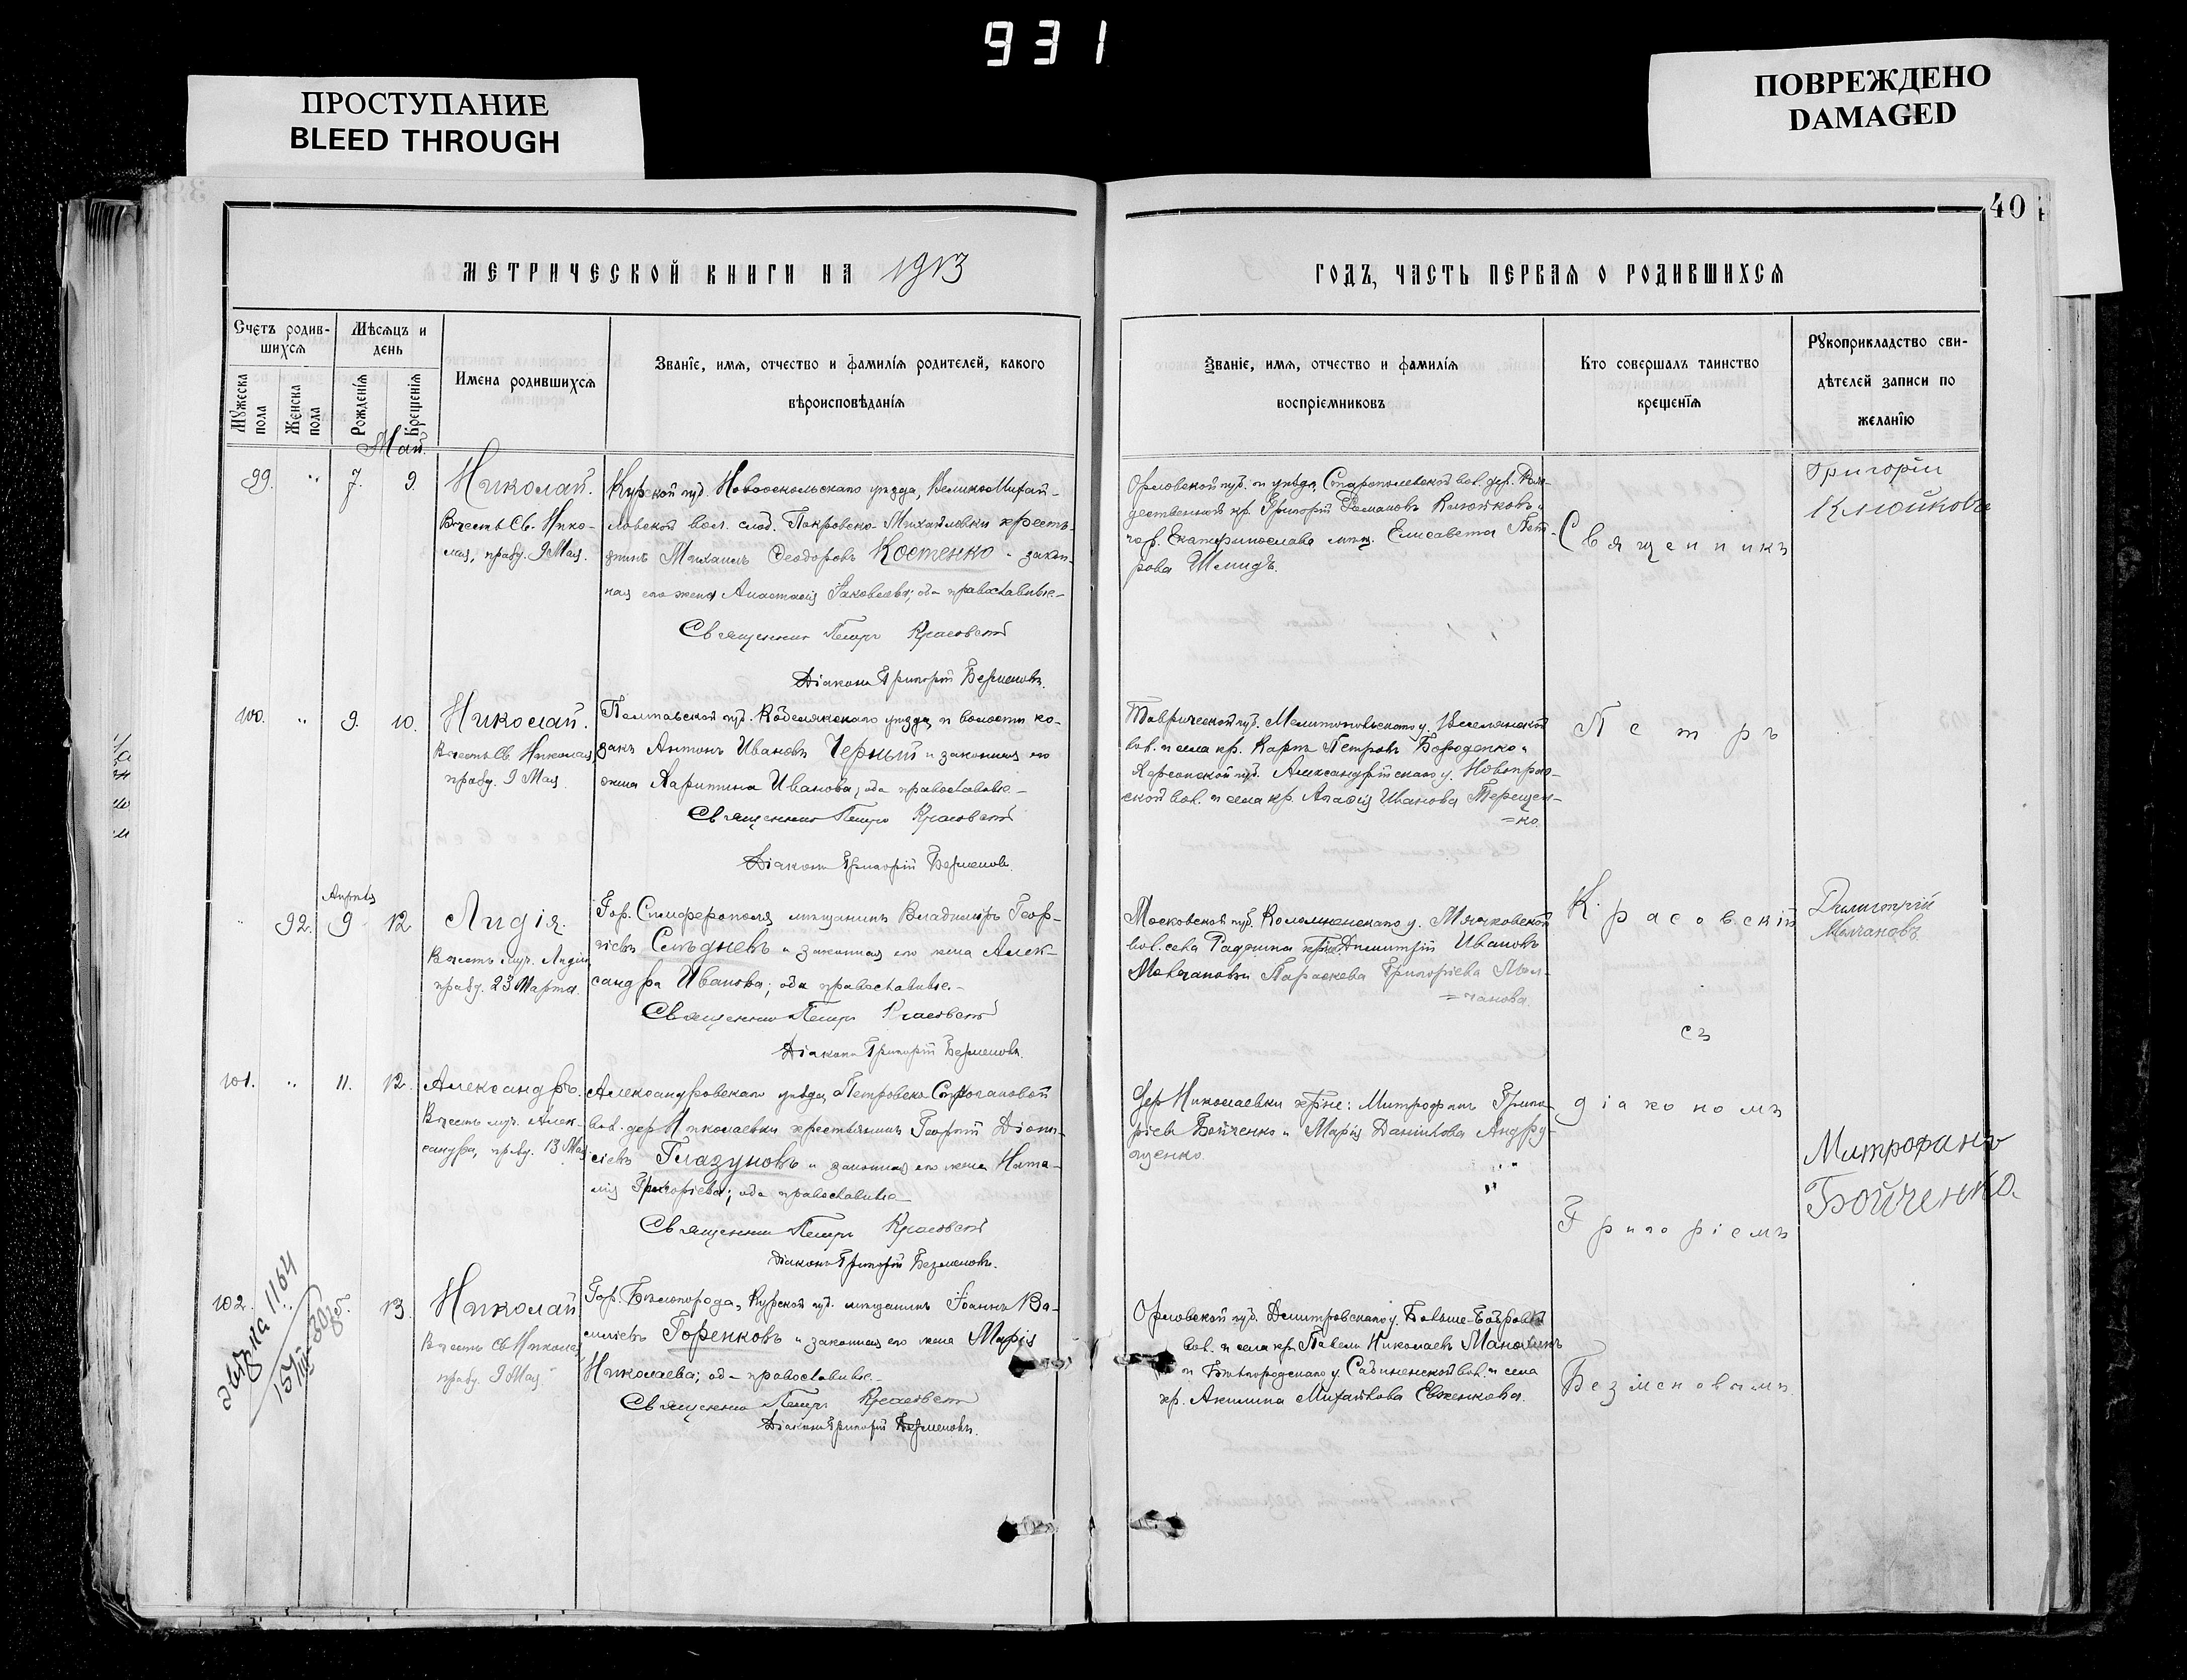 931
ПРОСТУПАНИЕ
BLEED THROUGH
ПОВРЕЖДЕНО
DAMAGED
40
МЕТРИЧЕСКОЙ КНИГИ НА 1913
ГОДЪ, ЧАСТЬ ПЕРВАЯ О РОДИВШИХСЯ
Счетъ родив-
шихся
Мѣсяцъ и
день
Мужеска пола
Женска пола
Рожденія
Крещенія
Имена родившихся
Званіе, имя, отчество и фамилія родителей, какого
вѣроисповѣданія
Званіе, имя, отчество и фамилія
воспріемниковъ
Кто совершалъ таинство
крещенія
Рукоприкладство сви-
дѣтелей записи по
желанію
Май.
99. " 7. 9.
Николай.
Въ честь Св. Нико-
лая, празд. 9 Мая.
Курской губ. Новооскольскаго уѣзда, Велико-Михай-
ловской вол. слоб. Покровско-Михайловки кресть-
янинъ Михаилъ Ѳеодоровъ Костенко и закон-
ная его жена Анастасія Іаковлева; оба православные.
Священникъ Петръ Красовскій
Діаконъ Григорій Безменовъ.
Орловской губ. и уѣзда, вол. дер.
кр. Григорій Романовъ и
гор. Екатеринослава мѣщ. Елисавета Пет-
рова Шмидъ.
Григорій
100. " 9. 10.
Николай.
Въ честь Св. Николая,
празд. 9 Мая
Полтавской губ. Кобелякскаго уѣзда и волости ко-
закъ Антонъ Ивановъ Черный и законная его
жена Харитина Иванова; оба православные.
Священникъ Петръ Красовскій
Діаконъ Григорій Безменовъ.
Таврической губ. Мелитопольскаго у. Веселянской
вол. и села кр. Карпъ Петровъ Бороденко и
Херсонской губ. Александрійскаго у. Новопраж-
ской вол. и села кр. Иванова Терещен-
=ко.
Апрѣля
" 92. 9 12
Лидія.
Въ честь муч. Лидіи,
празд. 23 Марта.
Гор. Симферополя мѣщанинъ Владиміръ Геор-
гіевъ Слѣдневъ и законная его жена Алек-
сандра Иванова; оба православные.
Священникъ Петръ Красовскій
Діаконъ Григорій Безменовъ.
Московской губ. Коломенскаго у. Мячковской
вол. села кр-не Димитрій Ивановъ
Молчановъ и Параскева Григоріева Мол-
=чанова.
Димитрій
Молчановъ
101. " 11. 12.
Александръ.
Въ честь муч. Алек-
сандра, празд. 13 Мая
Александровскаго уѣзда, Петровско-
вол. дер. Николаевки крестьянинъ Георгій Діони-
сіевъ Глазуновъ и законная его жена Ната-
лія Григоріева; оба православные
Священникъ Петръ Красовскій
Діаконъ Григорій Безменовъ.
Дер. Николаевки кр-не: Митрофанъ Григо-
ріевъ Бойченко и Марія Даніилова Андру-
щенко.
Митрофанъ
Бойченко.
102. " 13.
Николай
Въ честь Св. Николая,
празд. 9 Мая
Гор. Бѣлогорода, Курской губ. мѣщанинъ Іоаннъ Ва-
силіевъ Горенковъ и законная его жена Марія
Николаева; оба православные.
Священникъ Петръ Красовскій
Діаконъ Григорій Безменовъ.
Орловской губ. Дмитровскаго у. Больше-Бобровской
вол. и села кр. Павелъ Николаевъ
и Бѣлгородскаго у. Сабынинской вол. и села
кр. Акилина Михайлова Евженкова.
1164
Священникъ
Петръ
Красовскій
съ
діакономъ
Григоріемъ
Безменовымъ.